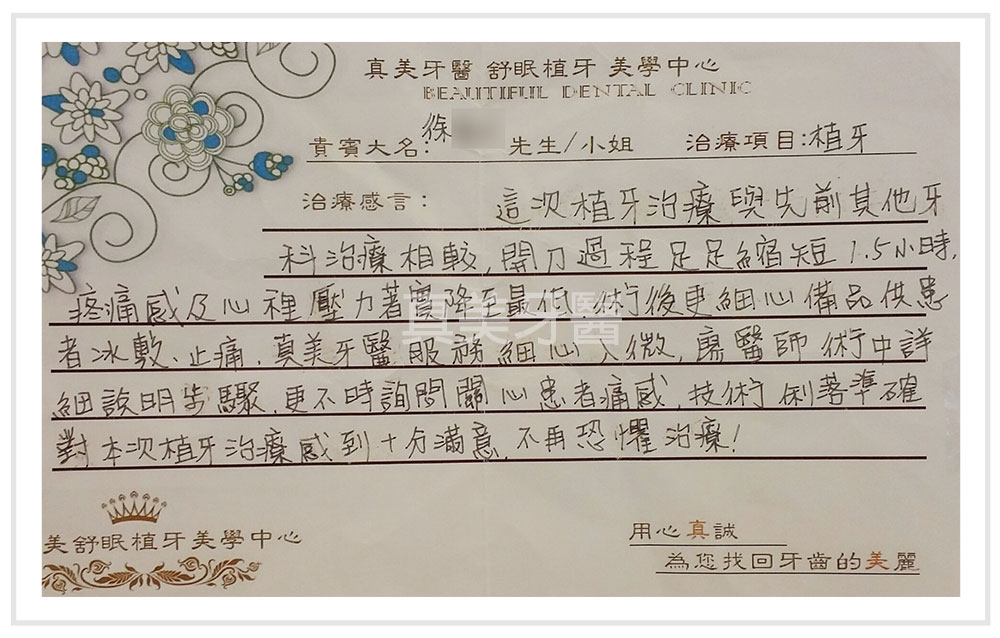 真美牙醫 舒眠植牙 美學中心
BEAUTIFUL DENTAL CLINIC
貴賓大名:徐 先生/小姐 治療項目:植牙
治療感言: 這次植牙治療與先前其他牙
科治療相較,開刀過程足足縮短1.5小時,
疼痛感及心裡壓力著實降至最低,術後更細心備品供患
者冰敷、止痛,真美牙醫服務細心入微,廖醫師術中詳
細說明步驟,更不時詢問關心患者痛感,技術俐落準確
對本次植牙治療感到十分滿意,不再恐懼治療!
真美牙醫
美舒眠植牙美學中心
用心真誠
為您找回牙齒的美麗